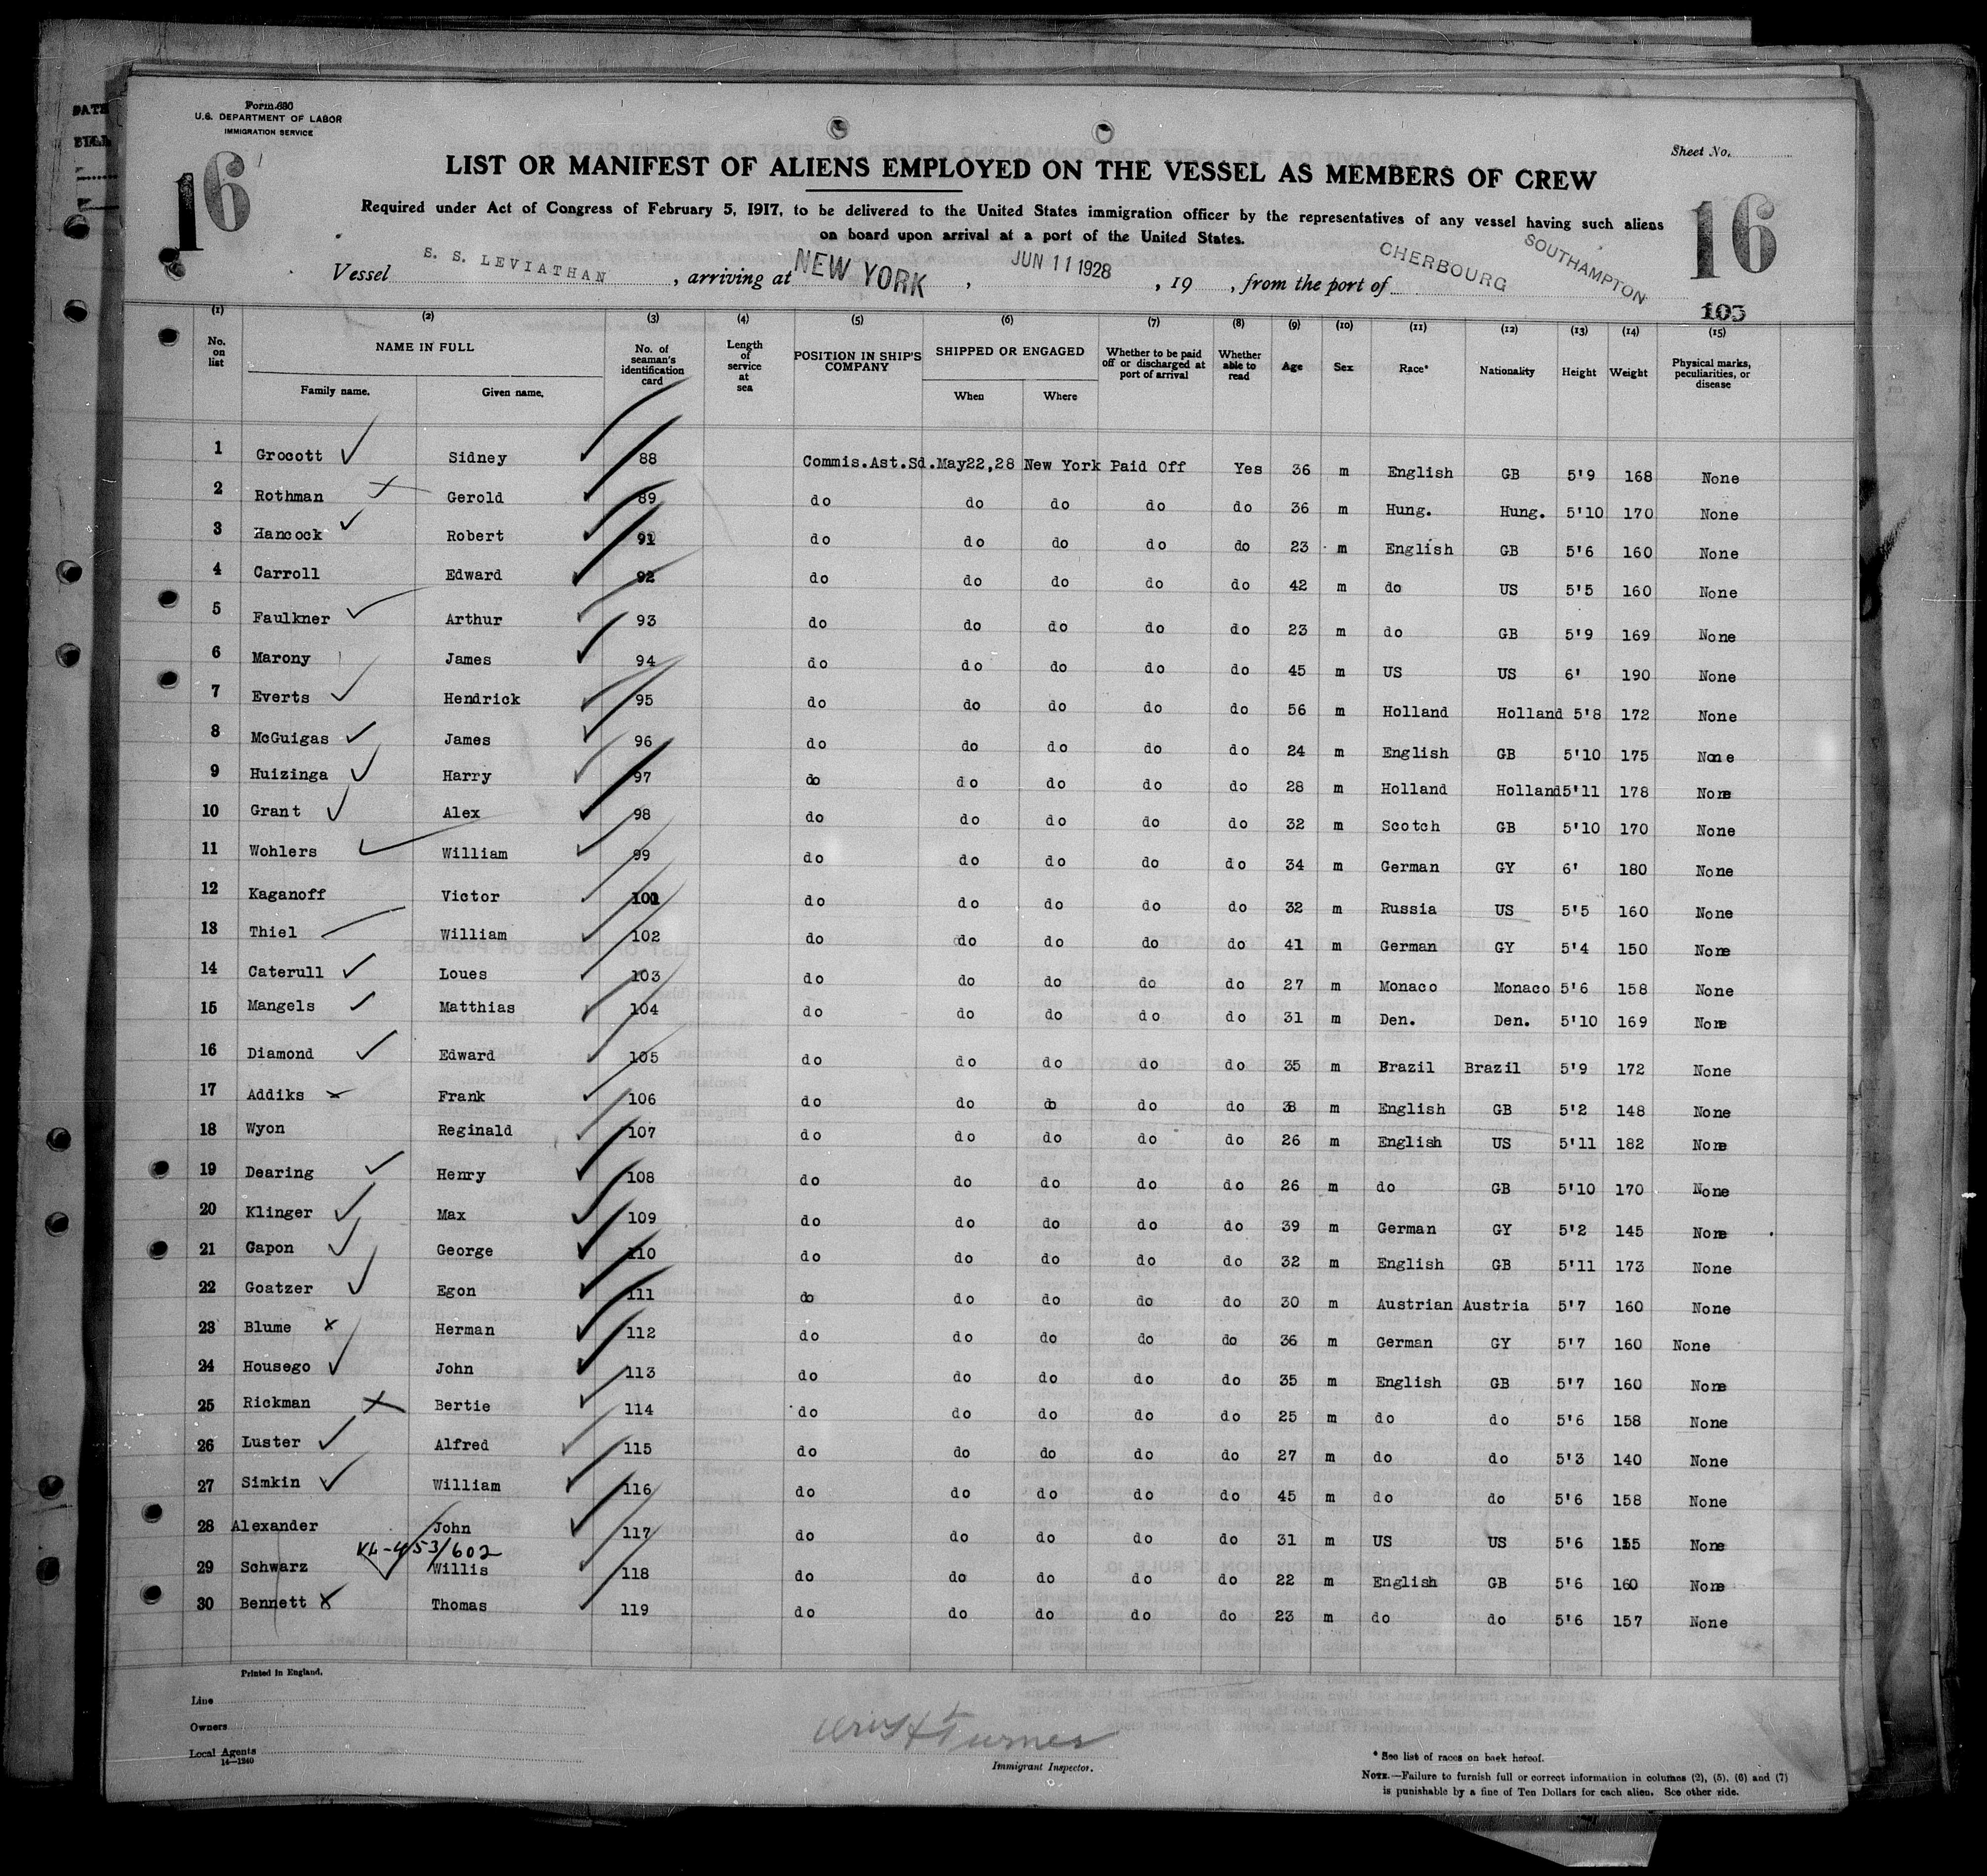 Form 680
U.S. DEPARTMENT OF LABOR
IMMIGRATION SERVICE
Sheet No.
16
16
LIST OR MANIFEST OF ALIENS EMPLOYED ON THE VESSEL AS MEMBERS OF CREW
Required under Act of Congress of February 5, 1917, to be delivered to the United States immigration officer by the representatives of any vessel having such aliens
on board upon arrival at a port of the United States.
Vessel S. S. LEVIATHAN , arriving at NEW YORK , JUN 11 1928 , 19 , from the port of CHERBOURG SOUTHAMPTON
105
(1) (2) (3) (4) (5) (6) (7) (8) (9) (10) (11) (12) (13) (14) (15)
No. on list NAME IN FULL Family name. Given name. No. of seaman's identification card Length of service at sea POSITION IN SHIP'S COMPANY SHIPPED OR ENGAGED When Where Whether to be paid off or discharged at port of arrival Whether able to read Age Sex Race* Nationality Height Weight Physical marks, peculiarities, or disease
1 Grocott Sidney 88 Commis.Ast.Sd. May22,28 New York Paid Off Yes 36 m English GB 5'9 168 None
2 Rothman Gerold 89 do do do do do 36 m Hung. Hung. 5'10 170 None
3 Hancock Robert 91 do do do do do 23 m English GB 5'6 160 None
4 Carroll Edward 92 do do do do do 42 m do US 5'5 160 None
5 Faulkner Arthur 93 do do do do do 23 m do GB 5'9 169 None
6 Marony James 94 do do do do do 45 m US US 6' 190 None
7 Everts Hendrick 95 do do do do do 56 m Holland Holland 5'8 172 None
8 McGuigas James 96 do do do do do 24 m English GB 5'10 175 None
9 Huizinga Harry 97 do do do do do 28 m Holland Holland 5'11 178 None
10 Grant Alex 98 do do do do do 32 m Scotch GB 5'10 170 None
11 Wohlers William 99 do do do do do 34 m German GY 6' 180 None
12 Kaganoff Victor 101 do do do do do 32 m Russia US 5'5 160 None
13 Thiel William 102 do do do do do 41 m German GY 5'4 150 None
14 Caterull Loues 103 do do do do do 27 m Monaco Monaco 5'6 158 None
15 Mangels Matthias 104 do do do do do 31 m Den. Den. 5'10 169 None
16 Diamond Edward 105 do do do do do 35 m Brazil Brazil 5'9 172 None
17 Addiks Frank 106 do do do do do 38 m English GB 5'2 148 None
18 Wyon Reginald 107 do do do do do 26 m English US 5'11 182 None
19 Dearing Henry 108 do do do do do 26 m do GB 5'10 170 None
20 Klinger Max 109 do do do do do 39 m German GY 5'2 145 None
21 Gapon George 110 do do do do do 32 m English GB 5'11 173 None
22 Goatzer Egon 111 do do do do do 30 m Austrian Austria 5'7 160 None
23 Blume Herman 112 do do do do do 36 m German GY 5'7 160 None
24 Housego John 113 do do do do do 35 m English GB 5'7 160 None
25 Rickman Bertie 114 do do do do do 25 m do do 5'6 158 None
26 Luster Alfred 115 do do do do do 27 m do do 5'3 140 None
27 Simkin William 116 do do do do do 45 m do do 5'6 158 None
28 Alexander John 117 do do do do do 31 m US US 5'6 155 None
453/602
29 Schwarz Willis 118 do do do do do 22 m English GB 5'6 160 None
30 Bennett Thomas 119 do do do do do 23 m do do 5'6 157 None
Printed in England.
Line
Owners
Local Agents
14—1240
Turner
Immigrant Inspector.
* See list of races on back hereof.
NOTE.—Failure to furnish full or correct information in columns (2), (5), (6) and (7)
is punishable by a fine of Ten Dollars for each alien. See other side.